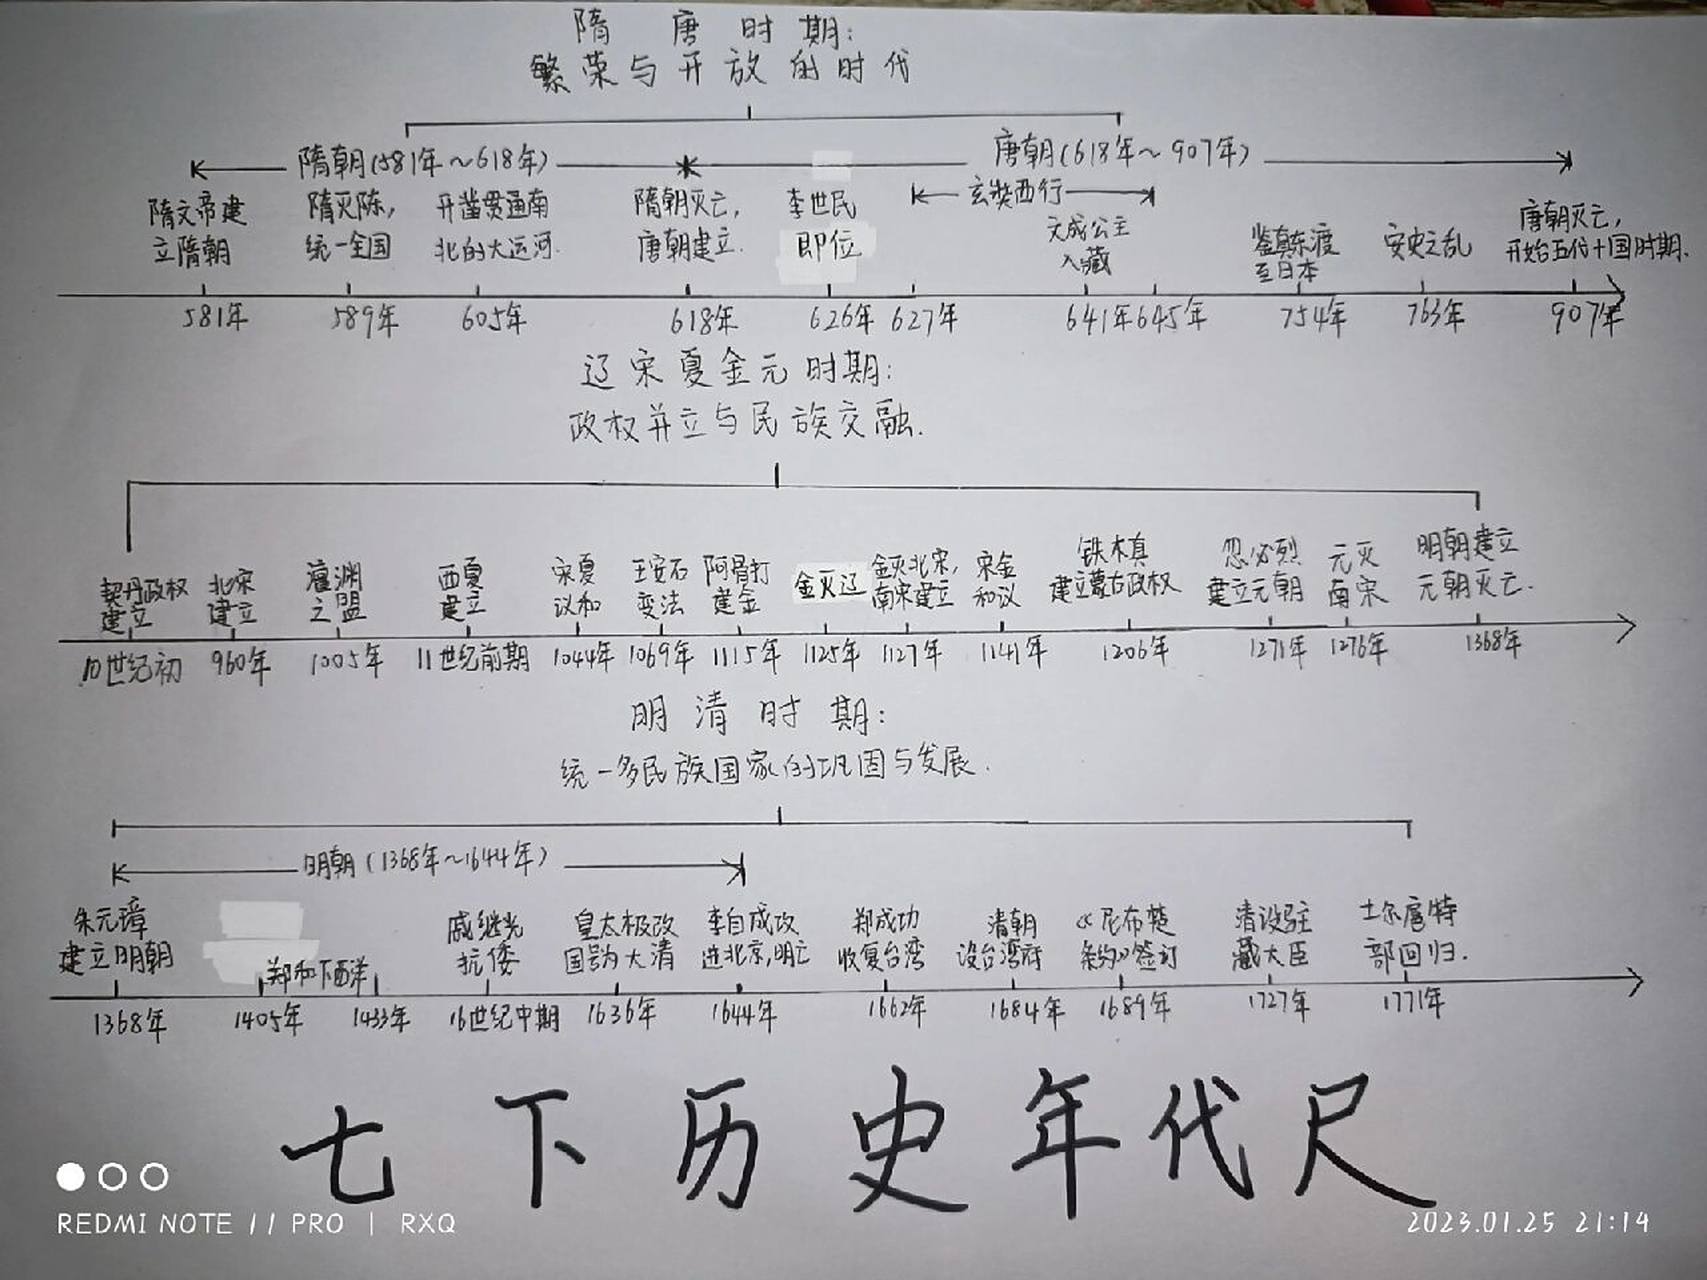 隋唐时期:
繁荣与开放的时代
隋朝(581年～618年)
唐朝(618年～907年)
玄奘西行
隋文帝建
立隋朝
隋灭陈,
统一全国
开凿贯通南
北的大运河.
隋朝灭亡,
唐朝建立.
李世民
即位
文成公主
入藏
鉴真东渡
至日本
安史之乱
唐朝灭亡,
开始五代十国时期.
581年
589年
605年
618年
626年
627年
641年
645年
754年
763年
907年
辽宋夏金元时期:
政权并立与民族交融.
契丹政权
建立
北宋
建立
澶渊
之盟
西夏
建立
宋夏
议和
王安石
变法
阿骨打
建金
金灭辽
金灭北宋,
南宋建立
宋金
和议
铁木真
建立蒙古政权
忽必烈
建立元朝
元灭
南宋
明朝建立
元朝灭亡.
10世纪初
960年
1005年
11世纪前期
1044年
1069年
1115年
1125年
1127年
1141年
1206年
1271年
1276年
1368年
明清时期:
统一多民族国家的巩固与发展.
明朝(1368年～1644年)
朱元璋
建立明朝
郑和下西洋
戚继光
抗倭
皇太极改
国号为大清
李自成攻
进北京,明亡
郑成功
收复台湾
清朝
设台湾府
《尼布楚
条约》签订
清设驻
藏大臣
土尔扈特
部回归.
1368年
1405年
1433年
16世纪中期
1636年
1644年
1662年
1684年
1689年
1727年
1771年
七下历史年代尺
REDMI NOTE 11 PRO | RXQ
2023.01.25 21:14